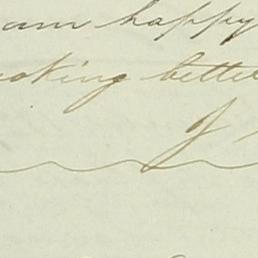 am happy
ooking bette
J